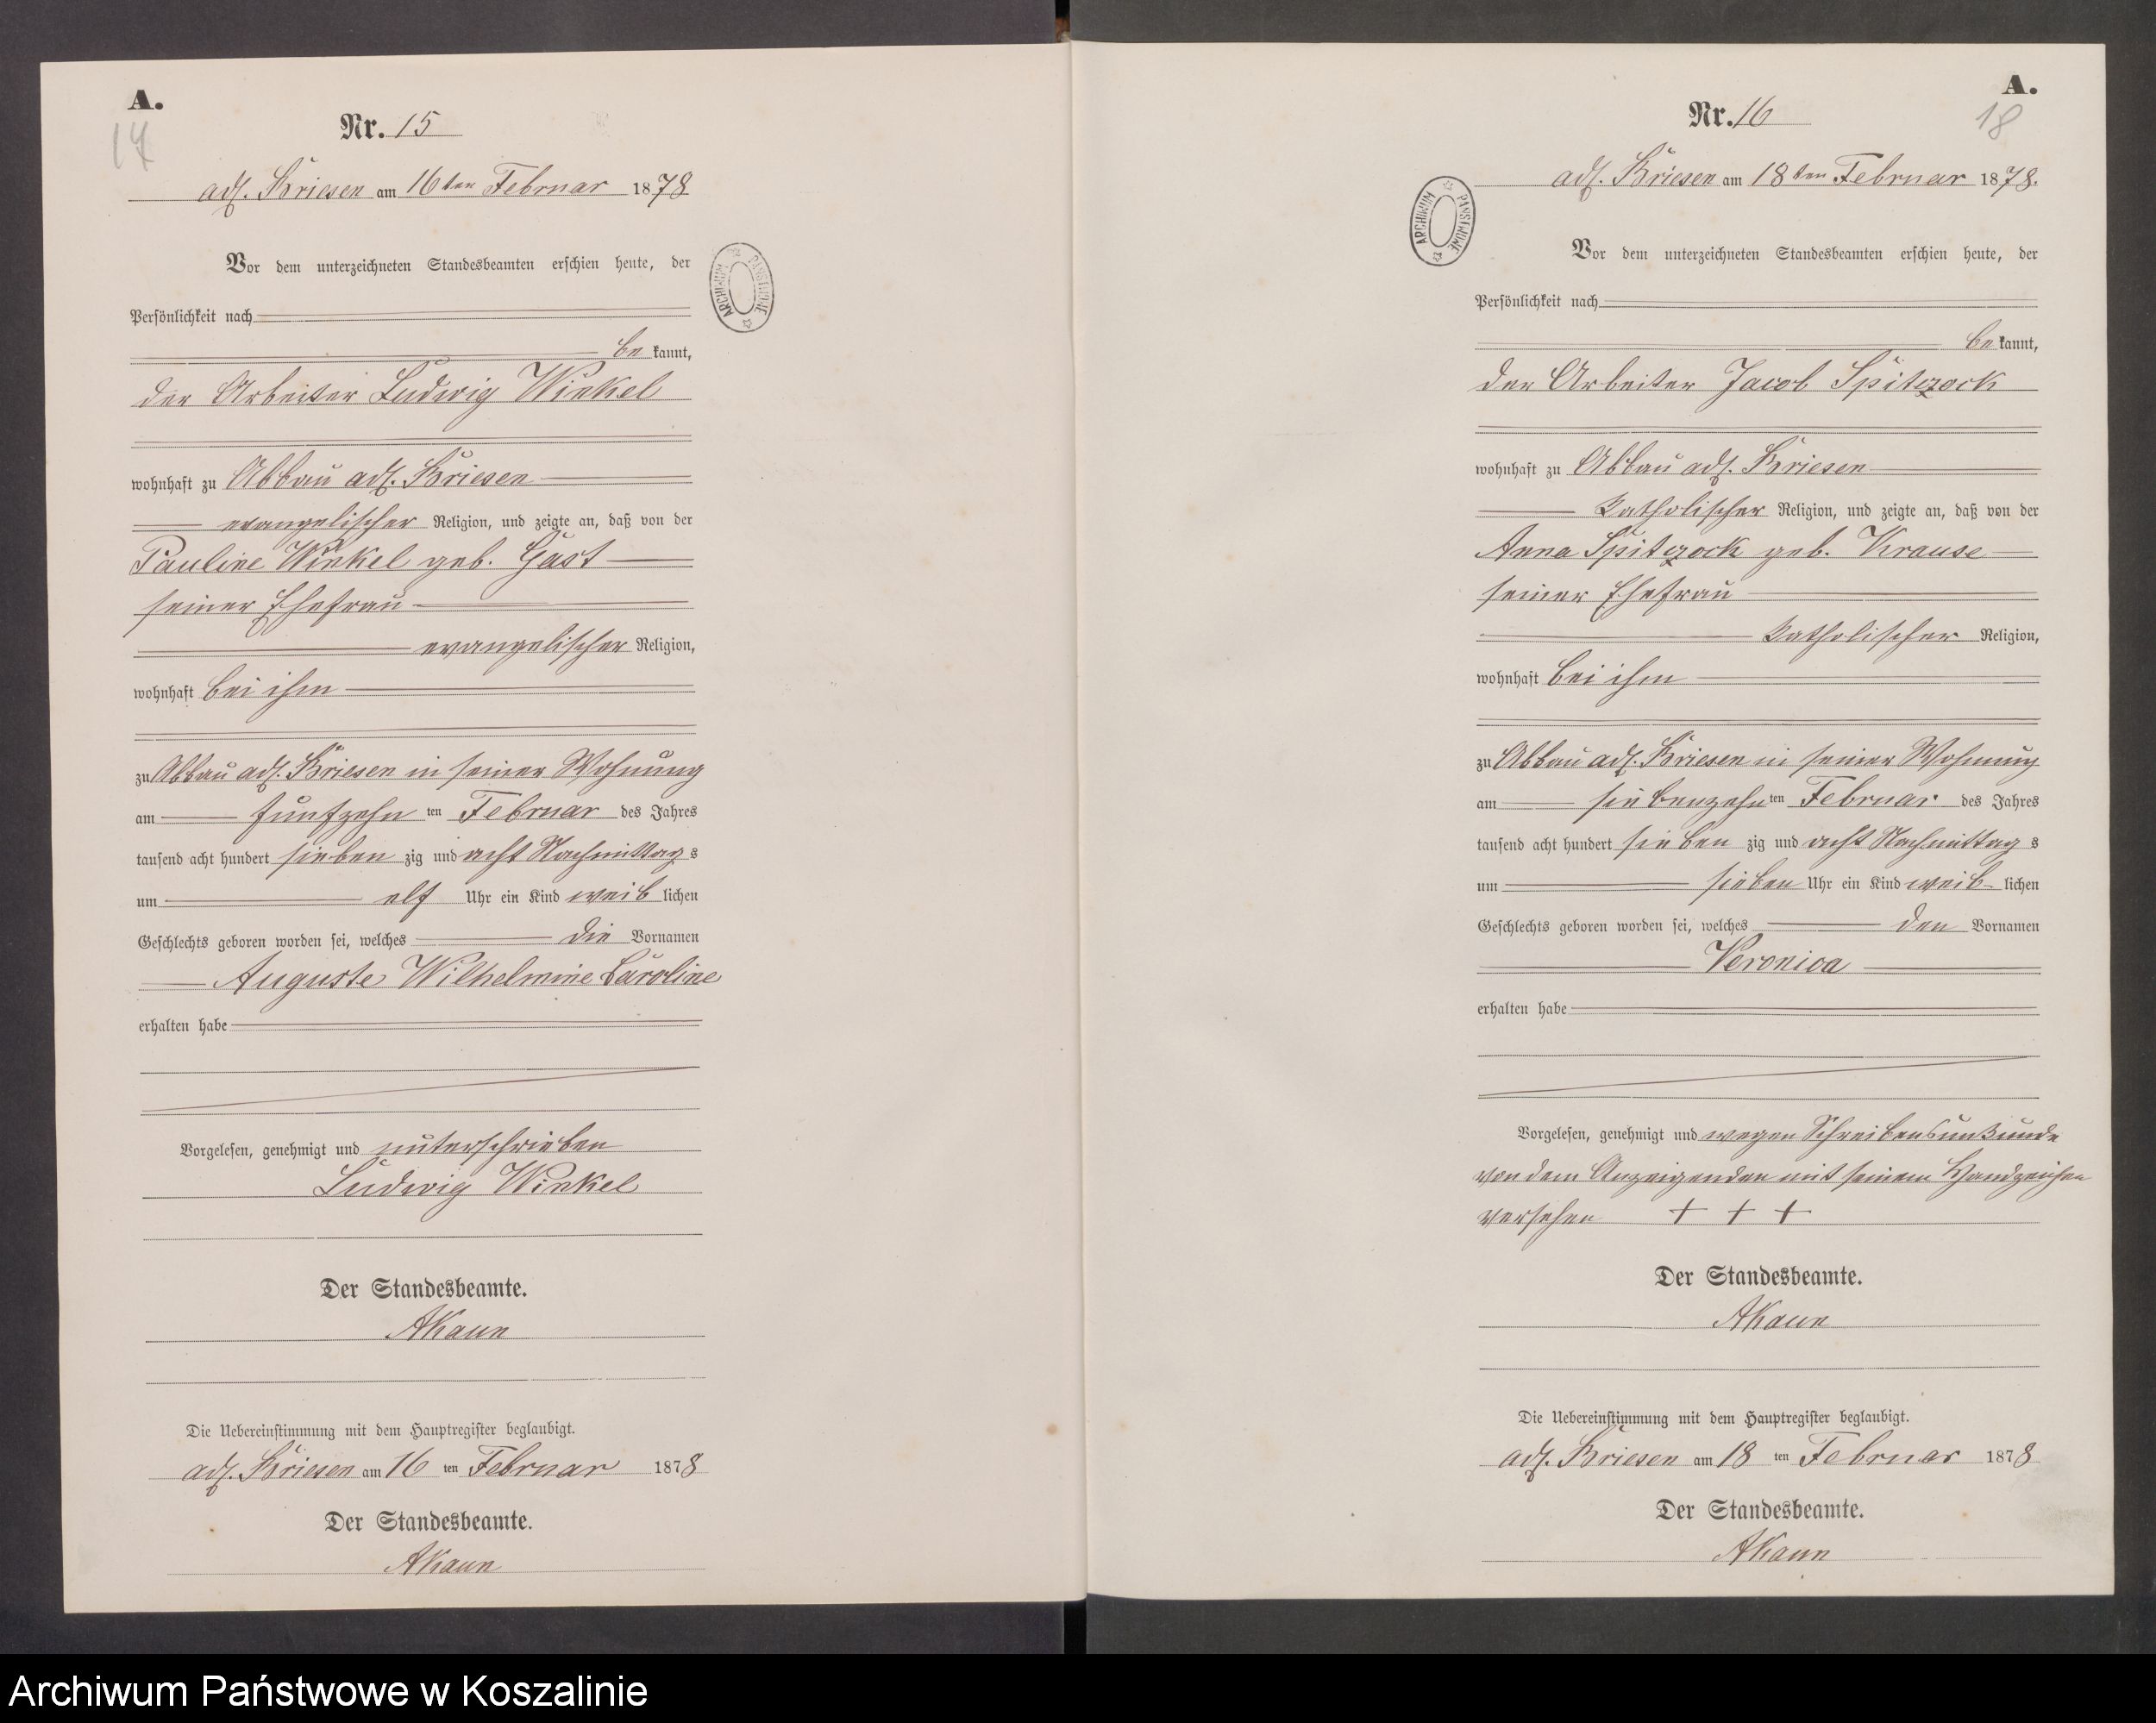 A.
17
Nr. 15
adl. Briesen am 16ten Februar 1878
Vor dem unterzeichneten Standesbeamten erschien heute, der
Persönlichkeit nach
be kannt,
der Arbeiter Ludwig Winkel
wohnhaft zu Abbau adl. Briesen
evangelischer Religion, und zeigte an, daß von der
Pauline Winkel geb. Gast
seiner Ehefrau
evangelischer Religion,
wohnhaft bei ihm
zu Abbau adl. Briesen in seiner Wohnung
am fünfzehn ten Februar des Jahres
tausend acht hundert sieben zig und acht Nachmittag s
um elf Uhr ein Kind weib lichen
Geschlechts geboren worden sei, welches die Vornamen
Auguste Wilhelmine Caroline
erhalten habe
Vorgelesen, genehmigt und unterschrieben
Ludwig Winkel
Der Standesbeamte.
AKaun
Die Uebereinstimmung mit dem Hauptregister beglaubigt.
adl. Briesen am 16 ten Februar 1878
Der Standesbeamte.
AKaun
ARCHIWUM PAŃSTWOWE
A.
18
Nr. 16
adl. Briesen am 18ten Februar 1878.
Vor dem unterzeichneten Standesbeamten erschien heute, der
Persönlichkeit nach
be kannt,
der Arbeiter Jacob Spitczock
wohnhaft zu Abbau adl. Briesen
katholischer Religion, und zeigte an, daß von der
Anna Spitczock geb. Krause
seiner Ehefrau
katholischer Religion,
wohnhaft bei ihm
zu Abbau adl. Briesen in seiner Wohnung
am siebenzehn ten Februar des Jahres
tausend acht hundert sieben zig und acht Nachmittag s
um sieben Uhr ein Kind weib- lichen
Geschlechts geboren worden sei, welches den Vornamen
Veronica
erhalten habe
Vorgelesen, genehmigt und wegen Schreibensunkunde
von dem Anzeigenden mit seinem Handzeichen
versehen + + +
Der Standesbeamte.
AKaun
Die Uebereinstimmung mit dem Hauptregister beglaubigt.
adl. Briesen am 18 ten Februar 1878
Der Standesbeamte.
AKaun
ARCHIWUM PAŃSTWOWE
Archiwum Państwowe w Koszalinie